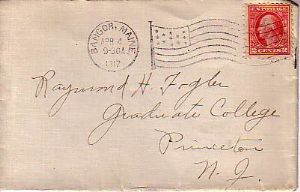 BANGOR, MAINE
APR 4
1917
U.S. POSTAGE
2 CENTS 2
Raymond H. Fogler
Graduate College
Princeton
N. J.